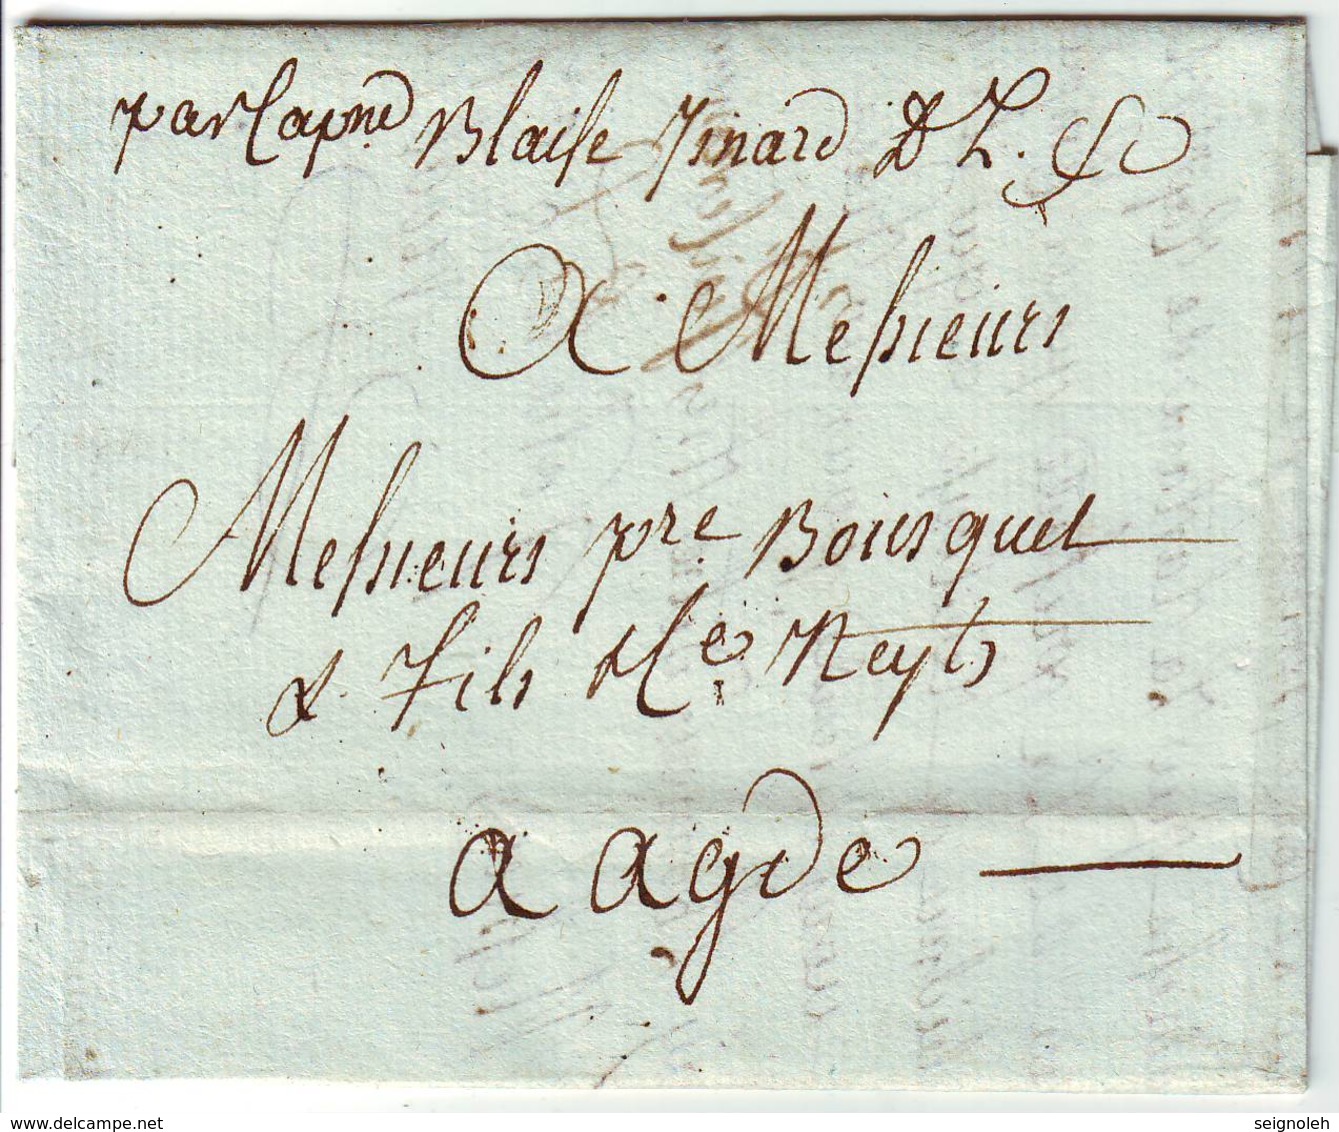 par Capne Blaise Jinard
A Messieurs
Messieurs pre Bousquet
& fils & Ce Neyts
a agde
www.delcampe.net
seignoleh